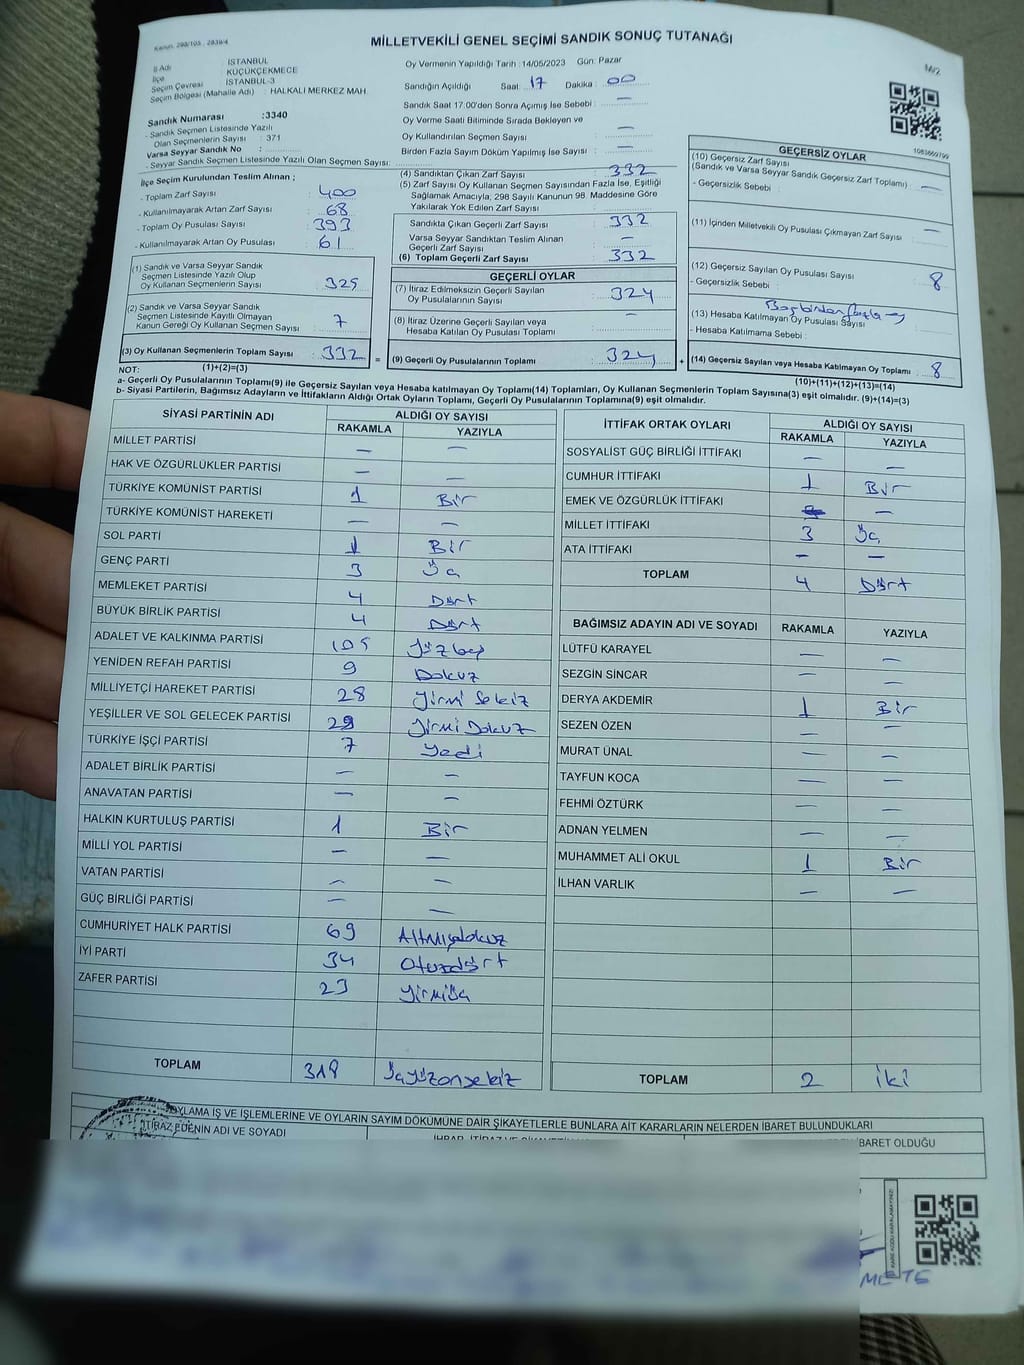 Kanun: 298/105 , 2839/4
MİLLETVEKİLİ GENEL SEÇİMİ SANDIK SONUÇ TUTANAĞI
M/2
İl Adı : İSTANBUL
İlçe : KÜÇÜKÇEKMECE
Seçim Çevresi : İSTANBUL-3
Seçim Bölgesi (Mahalle Adı) : HALKALI MERKEZ MAH.
Sandık Numarası :3340
- Sandık Seçmen Listesinde Yazılı
Olan Seçmenlerin Sayısı : 371
Varsa Seyyar Sandık No :
- Seyyar Sandık Seçmen Listesinde Yazılı Olan Seçmen Sayısı:
Oy Vermenin Yapıldığı Tarih :14/05/2023 Gün: Pazar
Sandığın Açıldığı Saat: 17 Dakika : 00
Sandık Saat 17:00'den Sonra Açımış İse Sebebi : —
Oy Verme Saati Bitiminde Sırada Bekleyen ve
Oy Kullandırılan Seçmen Sayısı : —
Birden Fazla Sayım Döküm Yapılmış İse Sayısı : —
1083669799
İlçe Seçim Kurulundan Teslim Alınan ;
- Toplam Zarf Sayısı : 400
- Kullanılmayarak Artan Zarf Sayısı : 68
- Toplam Oy Pusulası Sayısı : 393
- Kullanılmayarak Artan Oy Pusulası : 61
(1) Sandık ve Varsa Seyyar Sandık
Seçmen Listesinde Yazılı Olup
Oy Kullanan Seçmenlerin Sayısı : 325
(2) Sandık ve Varsa Seyyar Sandık
Seçmen Listesinde Kayıtlı Olmayan
Kanun Gereği Oy Kullanan Seçmen Sayısı : 7
(3) Oy Kullanan Seçmenlerin Toplam Sayısı : 332 =
(1)+(2)=(3)
(4) Sandıktan Çıkan Zarf Sayısı : 332
(5) Zarf Sayısı Oy Kullanan Seçmen Sayısından Fazla İse, Eşitliği
Sağlamak Amacıyla, 298 Sayılı Kanunun 98. Maddesine Göre
Yakılarak Yok Edilen Zarf Sayısı :
Sandıkta Çıkan Geçerli Zarf Sayısı : 332
Varsa Seyyar Sandıktan Teslim Alınan
Geçerli Zarf Sayısı : —
(6) Toplam Geçerli Zarf Sayısı : 332
GEÇERLİ OYLAR
(7) İtiraz Edilmeksizin Geçerli Sayılan
Oy Pusulalarının Sayısı : 324
(8) İtiraz Üzerine Geçerli Sayılan veya
Hesaba Katılan Oy Pusulaları Toplamı : —
(9) Geçerli Oy Pusulalarının Toplamı : 324 +
GEÇERSİZ OYLAR
(10) Geçersiz Zarf Sayısı
(Sandık ve Varsa Seyyar Sandık Geçersiz Zarf Toplamı) : —
- Geçersizlik Sebebi :
(11) İçinden Milletvekili Oy Pusulası Çıkmayan Zarf Sayısı : —
(12) Geçersiz Sayılan Oy Pusulası Sayısı : 8
- Geçersizlik Sebebi :
(13) Hesaba Katılmayan Oy Pusulası Sayısı
- Hesaba Katılmama Sebebi :
(14) Geçersiz Sayılan veya Hesaba Katılmayan Oy Toplamı : 8
(10)+(11)+(12)+(13)=(14)
NOT:
a- Geçerli Oy Pusulalarının Toplamı(9) ile Geçersiz Sayılan veya Hesaba katılmayan Oy Toplamı(14) Toplamları, Oy Kullanan Seçmenlerin Toplam Sayısına(3) eşit olmalıdır. (9)+(14)=(3)
b- Siyasi Partilerin, Bağımsız Adayların ve İttifakların Aldığı Ortak Oyların Toplamı, Geçerli Oy Pusulalarının Toplamına(9) eşit olmalıdır.
SİYASİ PARTİNİN ADI ALDIĞI OY SAYISI
RAKAMLA YAZIYLA
MİLLET PARTİSİ — —
HAK VE ÖZGÜRLÜKLER PARTİSİ — —
TÜRKİYE KOMÜNİST PARTİSİ 1 Bir
TÜRKİYE KOMÜNİST HAREKETİ — —
SOL PARTİ 1 Bir
GENÇ PARTİ 3 Üç
MEMLEKET PARTİSİ 4 Dört
BÜYÜK BİRLİK PARTİSİ 4 Dört
ADALET VE KALKINMA PARTİSİ 105 Yüzbeş
YENİDEN REFAH PARTİSİ 9 Dokuz
MİLLİYETÇİ HAREKET PARTİSİ 28 Yirmi Sekiz
YEŞİLLER VE SOL GELECEK PARTİSİ 29 Yirmi Dokuz
TÜRKİYE İŞÇİ PARTİSİ 7 Yedi
ADALET BİRLİK PARTİSİ — —
ANAVATAN PARTİSİ — —
HALKIN KURTULUŞ PARTİSİ 1 Bir
MİLLİ YOL PARTİSİ — —
VATAN PARTİSİ — —
GÜÇ BİRLİĞİ PARTİSİ — —
CUMHURİYET HALK PARTİSİ 69 Altmışdokuz
İYİ PARTİ 34 Otuzdört
ZAFER PARTİSİ 23 Yirmiüç
TOPLAM 318 Üçyüzonsekiz
İTTİFAK ORTAK OYLARI ALDIĞI OY SAYISI
RAKAMLA YAZIYLA
SOSYALİST GÜÇ BİRLİĞİ İTTİFAKI — —
CUMHUR İTTİFAKI 1 Bir
EMEK VE ÖZGÜRLÜK İTTİFAKI —
MİLLET İTTİFAKI 3 Üç
ATA İTTİFAKI — —
TOPLAM 4 Dört
BAĞIMSIZ ADAYIN ADI VE SOYADI RAKAMLA YAZIYLA
LÜTFÜ KARAYEL — —
SEZGİN SİNCAR — —
DERYA AKDEMİR 1 Bir
SEZEN ÖZEN — —
MURAT ÜNAL — —
TAYFUN KOCA — —
FEHMİ ÖZTÜRK — —
ADNAN YELMEN — —
MUHAMMET ALİ OKUL 1 Bir
İLHAN VARLIK — —
TOPLAM 2 İki
OYLAMA İŞ VE İŞLEMLERİNE VE OYLARIN SAYIM DÖKÜMÜNE DAİR ŞİKAYETLERLE BUNLARA AİT KARARLARIN NELERDEN İBARET BULUNDUKLARI
İTİRAZ EDENİN ADI VE SOYADI
İBARET OLDUĞU
KARE KODU KARALAMAYINIZ!
METE